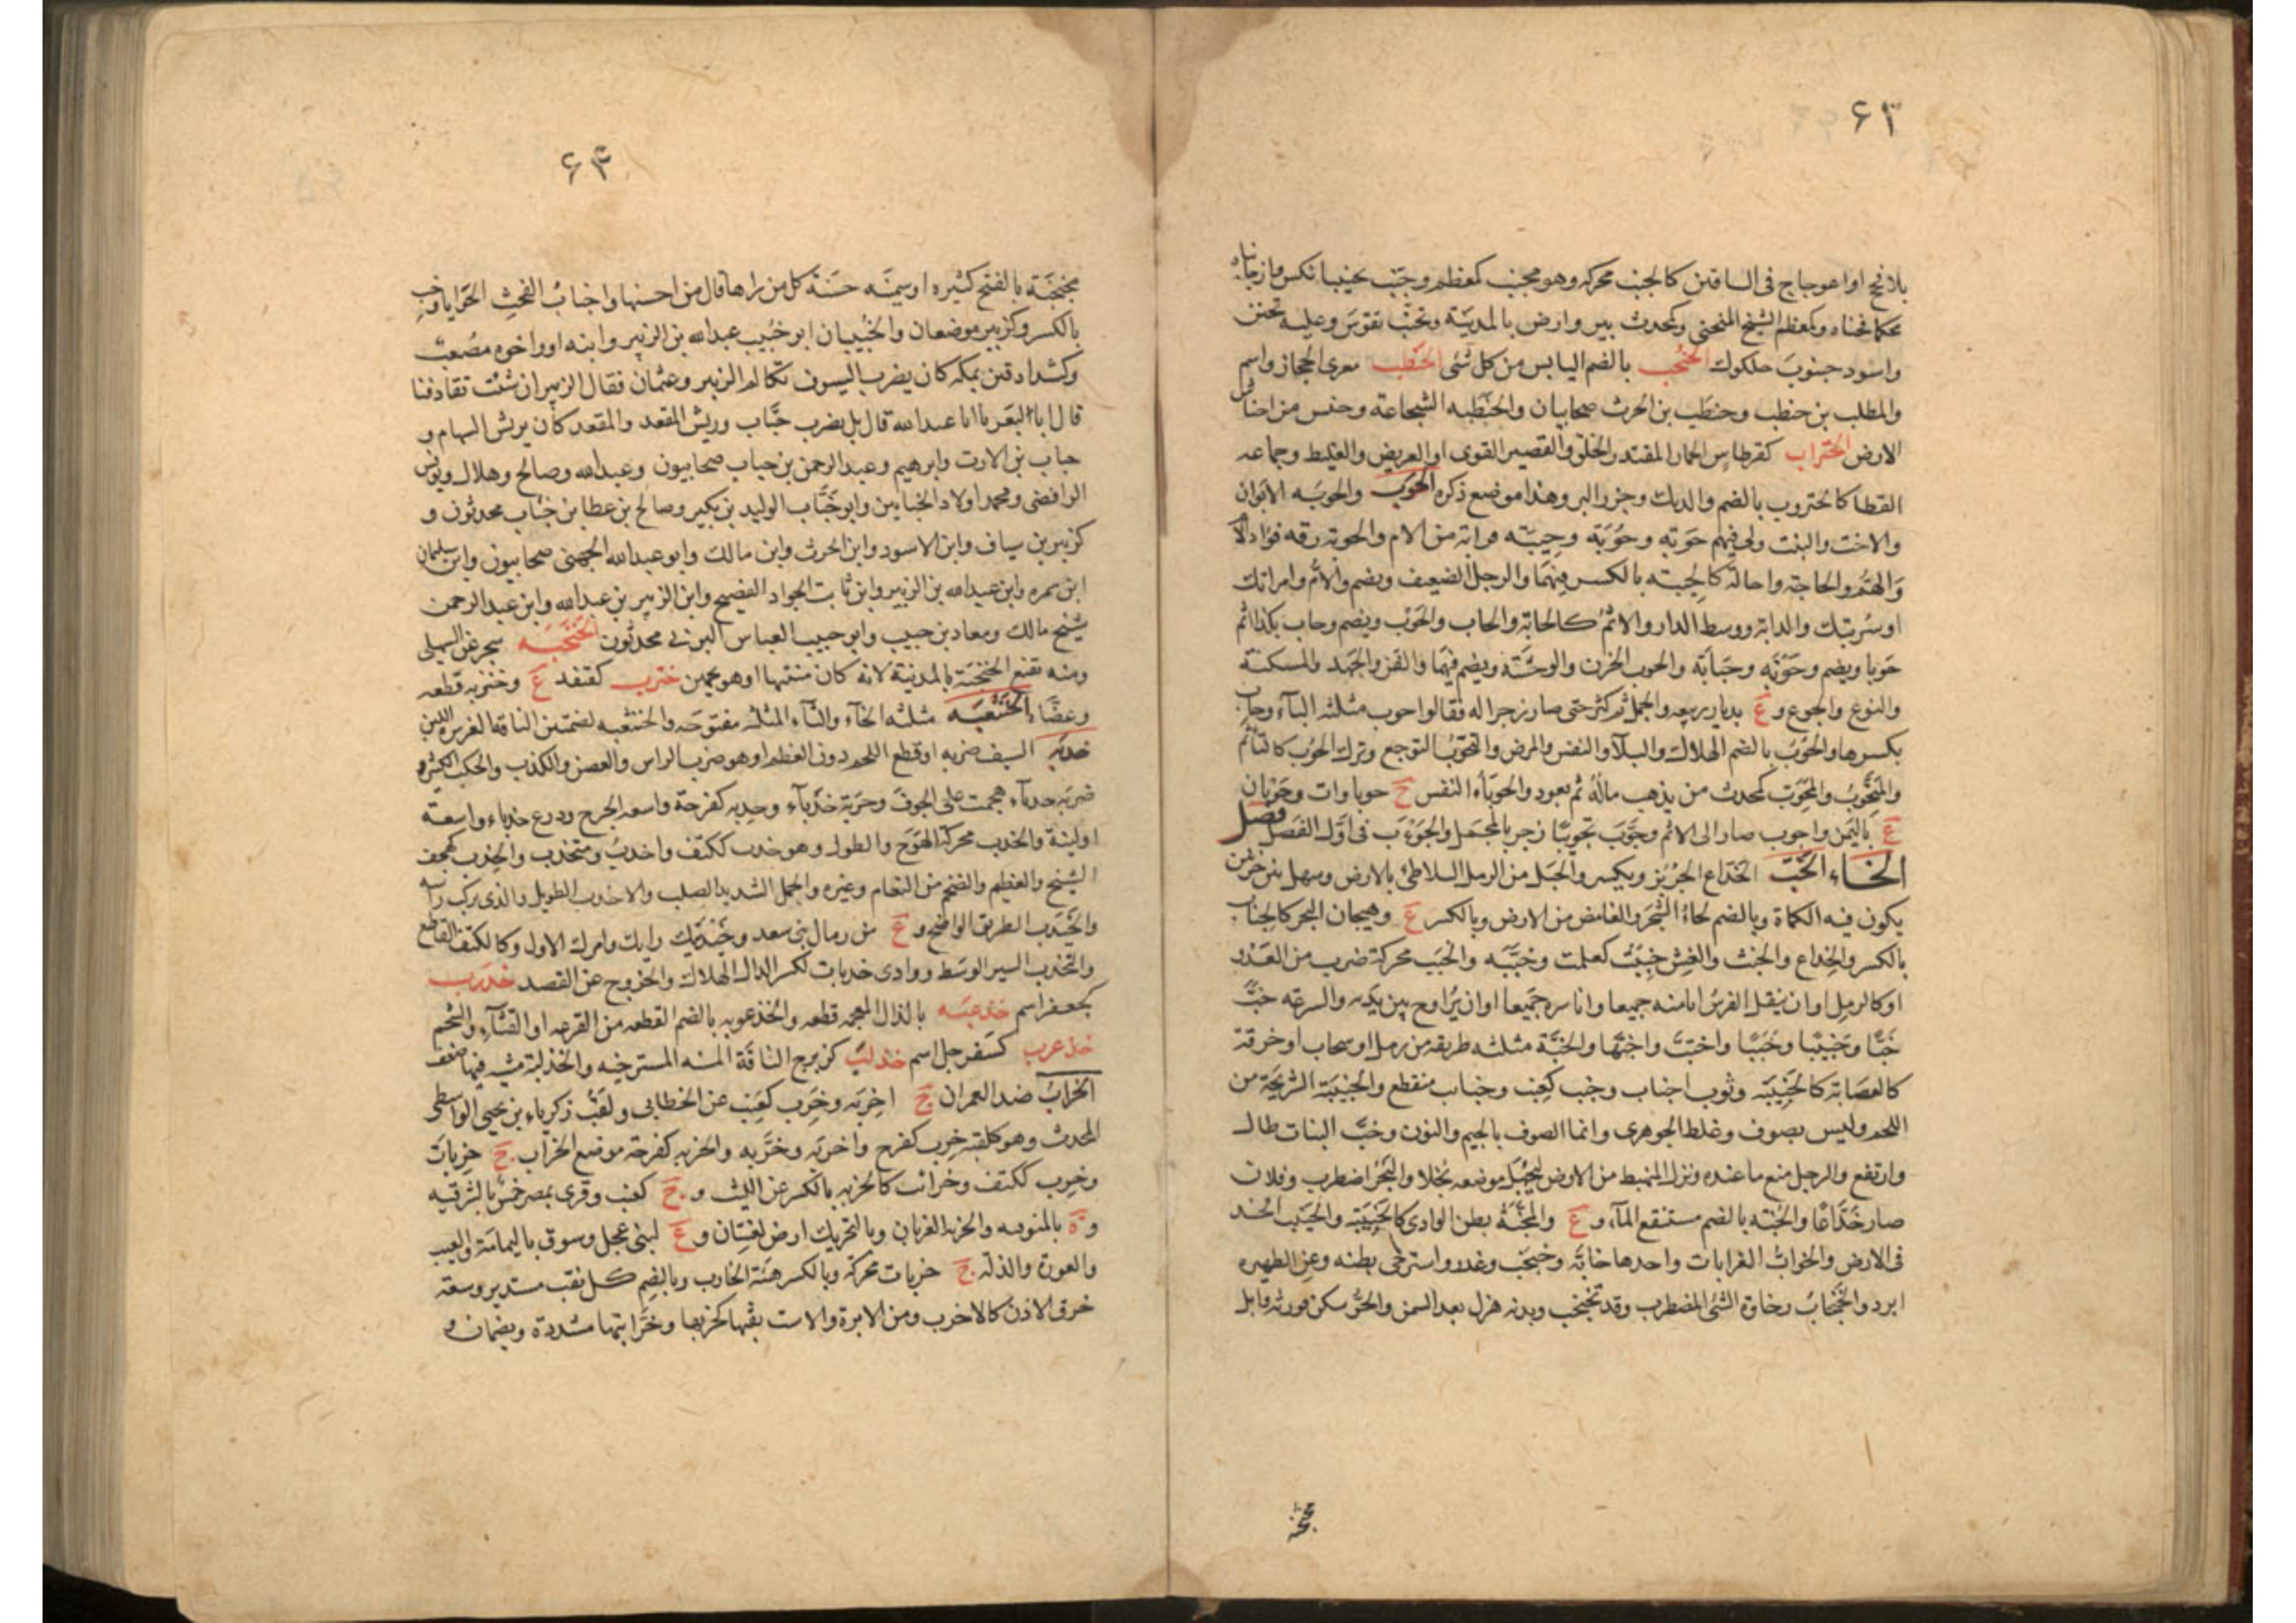 ۶۲
بلافحج او اعوجاج فى الساقين كالجنب محركه وهو مجنب كمعظم وحنب تحنيبا نكس وازجا بناه
محكما فحناه وكمعظم الشيخ المنحنى وكمحدث بير وارض بالمدينة وتحنب تقوس وعليه تحنن
واسود حنبوب حلكوك الحنجب بالضم اليابس من كل شئ الحنطب معزى الحجاز واسم
والمطلب بن حنطب وحنطب بن الحرث صحابيان والحنطبه الشجاعة وحنس من احناش
الارض الحنزاب كقرطاس الحمار المقتدر الخلق والقصير القوى او العريض والغليظ وجماعه
القطا كالحنزوب بالضم والديك وجزر البر وهذا موضع ذكره الحوب والحوبه الابوان
والاخت والبنت ولى فيهم حوبة وحوبة وحيبة قرابة من الام والحوبة رقه فؤاد الام
والهم والحاجة والحالة كالحيبة بالكسر فيهما والرجل الضعيف ويضم والام وامراتك
او سريتك والدابة ووسط الدار والاثم كالحابة والحاب والحوب ويضم وحاب بكذا اثم
حوبا ويضم وحوبة وحيابة والحوب الحزن والوحشة ويضم فيهما والفن والجهد والمسكنة
والنوع والوجع وع بديار ربيعه والجمل ثم كثر حتى صار زجرا له فقالوا حوب مثلثه الباء وحاب
بكسرها والحوب بالضم الهلاك والبلآء والنفس والمرض والتحوب التوجع وترك الحوب كالتاثم
والمتحوب والمحوب كمحدث من يذهب ماله ثم يعود والحوبآء النفس ج حوباوات وحوبان
ع باليمن واحوب صار الى الاثم وحوب تحويبا زجر بالجمل والحوءب فى اول الفصل فصل
الخاء الخب الخداع الجربز ويكسر والحبل من الرمل اللاطئ بالارض وسهل بين حزنين
يكون فيه الكماة وبالضم لحاء الشجر والغامض من الارض وبالكسر ع وهيجان البحر كالخباب
بالكسر والخداع والخبث والغش خببت كعلمت وخببه والخبب محركة ضرب من العدو
او كالرمل او ان ينقل الفرس ايامنه جميعا واياسره جميعا او ان يراوح بين يديه والسرعه خب
خبا وخبيبا وخببا واختب واخبها والخبة مثلثه طريقه من رمل او سحاب او خرقة
كالعصابة كالخبيبة وثوب اخباب وخبب كعنب وخبايب متقطع والخبيبة الشريحة من
اللحم وليس بصوف وغلط الجوهرى وانما الصوف بالجيم والنون وخب النبات طال
وارتفع والرجل منع ما عنده ونزل المنهبط من الارض ليجهل موضعه بخلا والبحر اضطرب وفلان
صار خداعا والخبه بالضم مستنقع المآء وع والمخبة بطن الوادى كالخبيبة والخبيب الخد
فى الارض والخواب القرابات واحدها خابه وخبخب وغدر واسترخى بطنه وعن الظهيره
ابرد والخبخاب رخاوة الشئ المضطرب وقد تخبخب وبدنه هزل بعد السمن والحر سكن فورته وابل
مخبخبة
۶۳
مخبخبة بالفتح كثيره او سمينه حسنة كل من راها قال من احسنها واخباب الفحث الحوايا وخب
بالكسر وكزبير موضعان والخبيبان ابو خبيب عبدالله بن الزبير وابنه او واخوه مصعب
وكشداد قين بمكه كان يضرب السيوف تكالم الزبير وعثمان فقال الزبير ان شئت تقاذفنا
قال ابا البعر يا ابا عبدالله قال بل بضرب خباب وريش المقعد والمقعد كان يريش السهام و
خباب بن الارت وابرهيم وعبدالرحمن بن خباب صحابيون وعبدالله وصالح وهلال ويونس
الرافضى ومحمد اولاد الخبابين وابو خباب الوليد بن بكير وصالح بن عطا بن خباب محدثون و
كزبير بن يساف وابن الاسود وابن الحرث وابن مالك وابو عبدالله الجهنى صحابيون وابن سليمان
ابن سمره وابن عبدالله بن الزبير وابن ثابت الجواد الفصيح وابن الزبير بن عبدالله وابن عبدالرحمن
شيخ مالك ومعاذ بن خبيب وابو خبيب العباس البرتى محدثون الخبخبه شجر عن السهيلى
ومنه بقيع الخبخبة بالمدينة لانه كان منبتها او هو بجيمين خترب كقنفذ ع وخترب قطعه
وعضاء الخنثعبه مثلثه الخاء والثآء المثلثه مفتوحه والخنثعبه بضمتين الناقة الغزيره اللبن
خدبه السيف ضربه او قطع اللحم دون العظم او هو ضرب الراس والعض والكذب والحلب الكثير و
ضربه خدبآء هجمت على الجوف وحربة خدبآء وخدبه كفرحة واسعه الجرح ودرع خدباء واسعة
او لينة والخدب محركة الهوج والطول وهو خدب ككتف واخدب ومتخدب والخدب كهجف
الشيخ والعظيم والضخم من النعام وغيره والجمل الشديد الصلب والاخدب الطويل والذى يركب راسه
والخيدب الطريق الواضح وع من رمال بنى سعد وخيدبتك رايك وامرك الاول وكالكتف القاطع
والتخدب السير الوسط ووادى خدبات لكسر الدال الهلاك والخروج عن القصد خدرب
كجعفر اسم خذعبه بالذال المعجمه قطعه والخذعوبه بالضم القطعه من القرعه او القثآء والشحم
خذعرب كسفرجل اسم خذلب كزبرج الناقة المسنه المسترخيه والخذلبة مشيه فيها ضعف
الخراب ضد العمران ج اخربه وخرب كعنب عن الخطابى ولقب زكرياء بن يحيى الواسطى
المحدث وهو كلقبه خرب كفرح واخربه وخربه والخربه كفرحة موضع الخراب ج خربات
وخرب ككتف وخرائب كالخربه بالكسر عن الليث وج كعنب وقرى بمصر خمس بالشرقيه
وة بالمنوفيه والخربه الغربال وبالتحريك ارض لغسان وع لبنى عجل وسوق باليمامة والعيب
والعورة والذلة ج خربات محركة وبالكسر هيئة الخارب وبالضم كل ثقب مستدير وسعة
خرق الاذن كالاخرب ومن الابرة والاست ثقبها كخربها وخرابتها مشددة ويضمان و